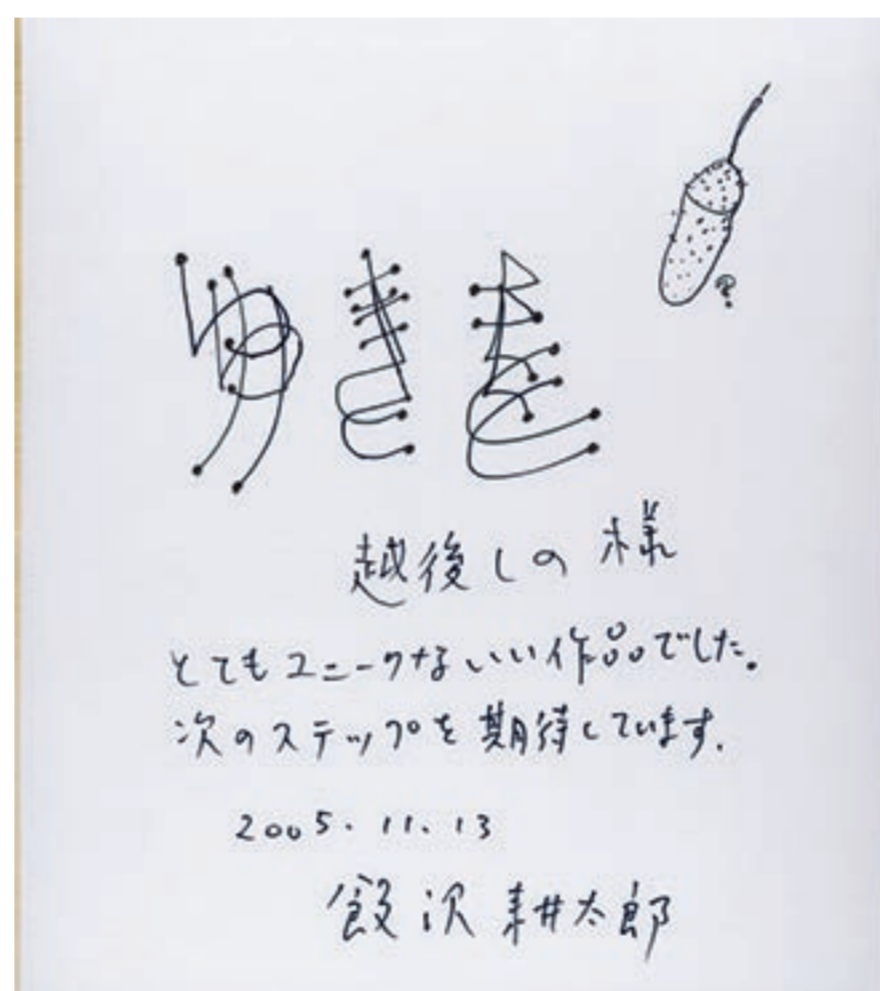 越後しの 様
とてもユニークないい作品でした。
次のステップを期待しています.
2005.11.13
飯沢耕太郎